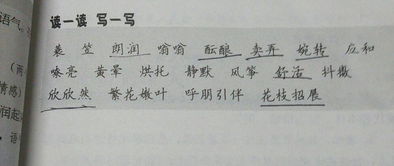 语气，
读一读 写一写
蓑 笠 朗润 嗡嗡 酝酿 卖弄 婉转 应和
(两
嘹亮 黄晕 烘托 静默 风筝 舒活 抖擞
情感)
欣欣然 繁花嫩叶 呼朋引伴 花枝招展
润起
语